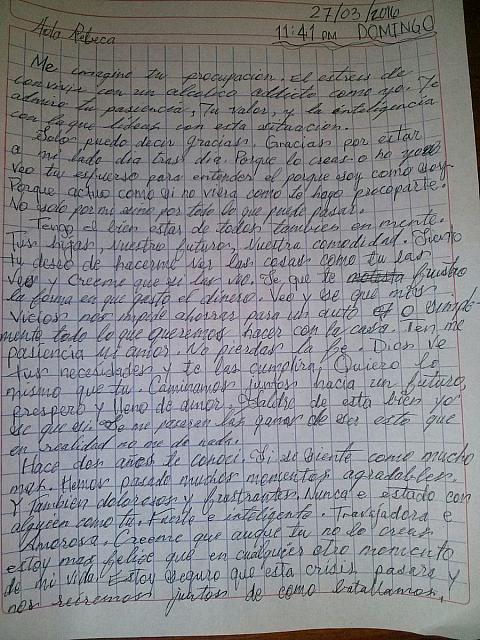 27/03/2016
11:41 PM DOMINGO
Hola Rebeca
Me imagino tu procupación. el estreis de
convivir con un alcolico addicto como yo. Te
admiro tu pasiencia, Tu valor, y la inteligencia
con la que lideas con esta situacion.
Solo puedo decir gracias. Gracias por estar
a mi lado dia tras dia. Porque lo creas o no yo
veo tu esfuerzo para entender el porque soy como soy.
Porque actuo como si no viera como te hago procoparte.
No solo por mi sino por todo lo que puede pasar.
Tengo el bien estar de todos tambien en mente.
Tus hijas, Nuestro futuro, Nuestra comodidad. Siento
tu deseo de hacerme ver las cosas como tu las
ves. Creeme que si las veo. Se que te frustra
la forma en que gasto el dinero. Veo y se que mis
vicios nos impide ahorrar para un auto o simple-
mente todo lo que queremos hacer con la casa. Ten me
pasiencia mi amor. No pierdas la fe. Dios ve
tus necesidades y te las cumplira. Quiero lo
mismo que tu. Caminamos juntos hacia un futuro,
prospero y lleno de amor. Saldre de esta bien yo
se que si. Se me pasaran las ganas de ser esto que
en realidad no me da nada.
Hace dos años te conoci. Si se siente como mucho
mas. Hemos pasado muchos momentos agradables.
Y Tambien dolorosos y frustrantes. Nunca e estado con
alguien como tu. Fuerte e inteligente. Travajadora e
Amorosa. Creeme que auque tu no lo creas
estoy mas felize que en cualquier otro momento
de mi vida. Estoy seguro que esta crisis pasara y
nos reiremos juntos de como batallamos.